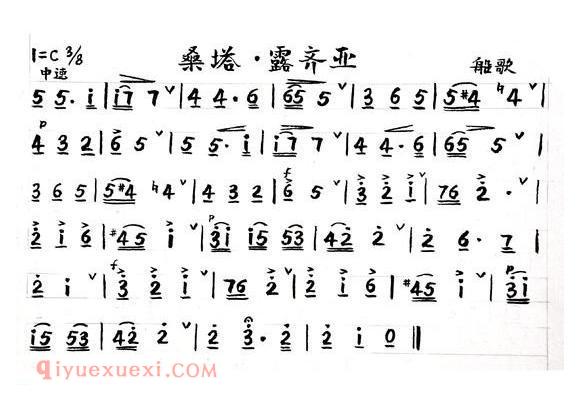 1=C 3/8 桑塔·露齐亚 船歌
中速
5 5· i | i7 7 ∨ | 4 4· 6 | 65 5 ∨ | 3 6 5 | 5#4 ♮4 ∨ |
p
4 3 2 | 6 5 ∨ | 5 5· i | i7 7 ∨ | 4 4· 6 | 65 5 ∨ |
f
3 6 5 | 5#4 ♮4 ∨ | 4 3 2 | 6 5 ∨ | 3 2 i ∨ | 76 2 · ∨ |
p
2 i 6 | #45 i ∨ | 3i i5 53 | 42 2 ∨ | 2 6· 7 |
f p
2 i ∨ | 3 2 i ∨ | 76 2 ∨ | 2 i 6 | #45 i ∨ | 3i
i5 53 | 42 2 ∨ | 2 3· 2 | 2 i 0 ‖
qiyuexuexi.com